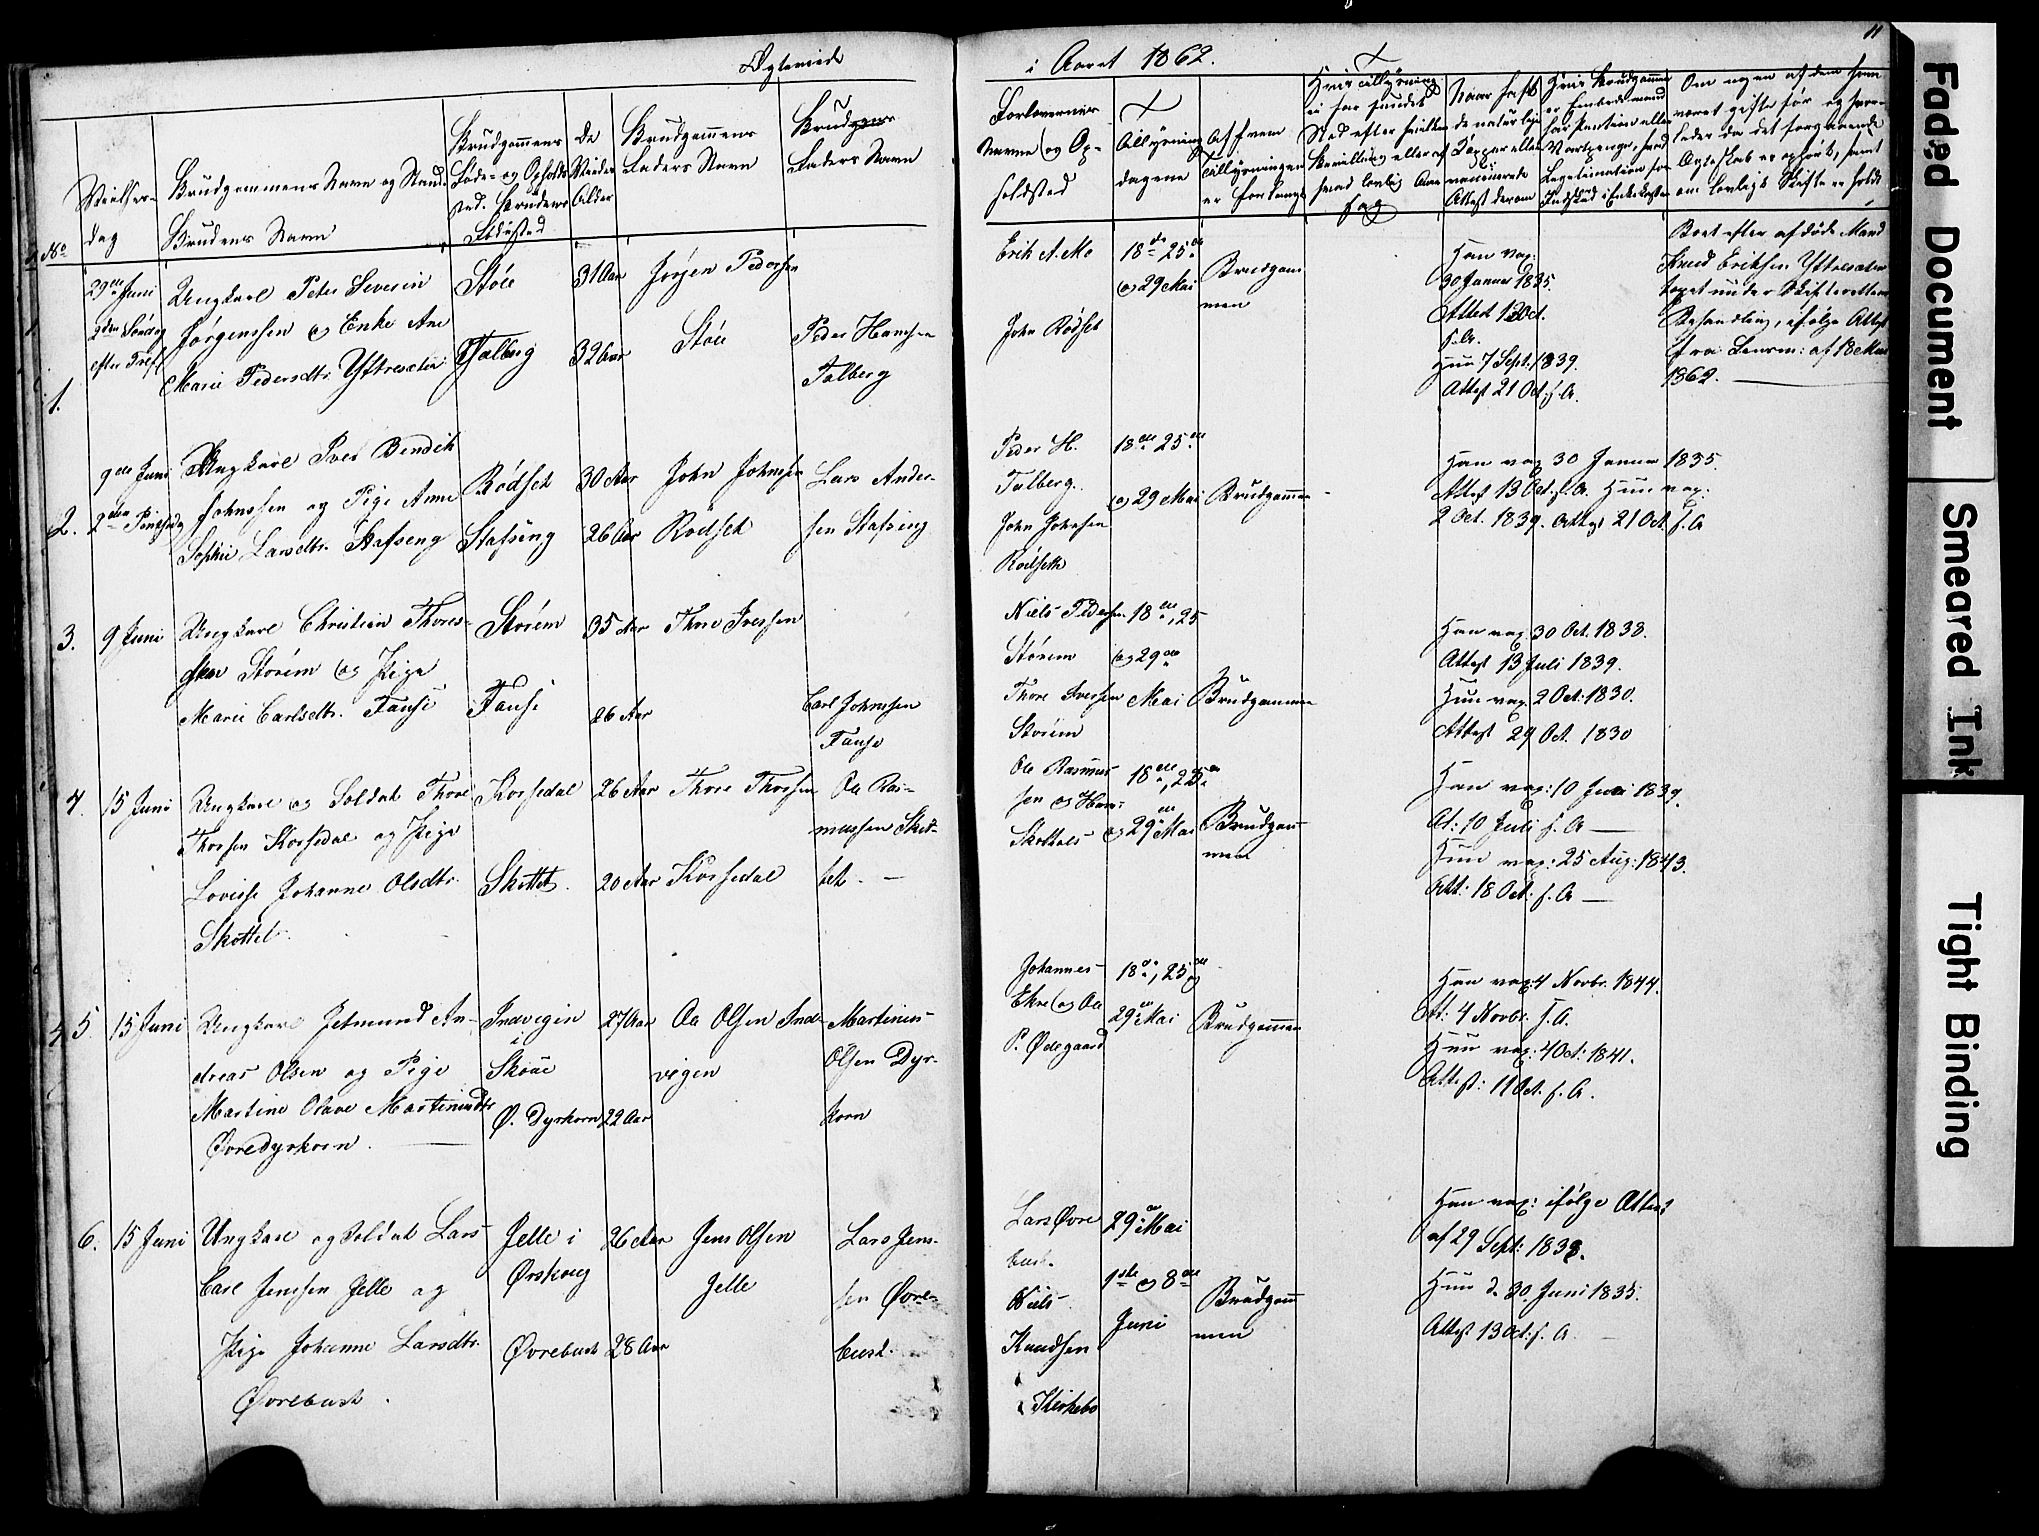 Ægteviede
i Aaret 1862.
11
No
Vielses-
dag
Brudgommens Navn og Stand.
Brudens Navn
Brudgommens
Føde- og Opholds
sted. Brudens
Fødested
De
Viedes
Alder
Brudgommens
Faders Navn
Brudens
Faders Navn
Forlovernes
Navne og Op-
holdsted
Tillysnings
dagene
Af hvem
Tillysningen
er forlangt
Hvis Tillysning
ei har fundet
Sted efter hvilken
Bevilling eller af
Naar havt
de naturlige
Kopper eller
vaccinerede
Attest derom
Hvis Brudgommen
er Embedsmand
Om nogen af dem have
været gifte før og hvor-
ledes da det forgaaende
Ægteskab er ophørt, samt
om lovligt Skifte er holdt
1.
29de Juni
2den Søndag
efter Tref.
Ungkarl Peter Severin
Jørgenssen og Enke Ane
Marie Pedersdtr. Yttresæter
Støle
Talberg
31 Aar
32 Aar
Jørgen Pedersen
Støle
Peder Hansen
Talberg
Erik A. Mo
John Rødset
18de 25de
og 29 Mai
Brudgom
men
Han vax:
30 Januar 1835.
Attest 13 Oct.
s. A.
Hun 7 Sept: 1839.
Attest 21 Oct. s. A.
Boet efter afdøde Mand
Knud Eriksen Yttresæter
taget under Skifterettens
Behandling, ifølge Attest
fra Lensm: af 18 Mai
1862.
2.
9de Juni
2den Pintsedag
Ungkarl Iver Bendik
Johnssen og Pige Anne
Sophie Larsdtr. Stafseng
Rødset
Stafseng
30 Aar
26 Aar
John Johnsen
Rødset
Lars Ander-
sen Stafseng
Peder H.
Talberg.
John Johnsen
Rødseth
18de 25de
og 29 Mai
Brudgommen
Han vax 30 Januar 1835.
Attest 13 Oct. s. A. Hun vax:
2 Oct. 1839. Attest 21 Oct. s. A
3.
9 Juni
Ungkarl Christian Thores-
sen Storeim og Pige
Marie Carlsdtr. Fause
Storeim
Fause
35 Aar
26 Aar
Thore Iverssen
Carl Johnssen
Fause
Niels Pedersen
Størem
Thore Iverssen
Storeim
18de, 25
og 29de
Mai
Brudgommen
Han vax. 30 Oct. 1838.
Attest 13 Juli 1839.
Hun vax. 2 Oct. 1830.
Attest 29 Oct. 1830
4.
15 Juni
Ungkarl og Soldat Thore
Thorsen Korsedal og Pige
Lovisse Johanne Olsdtr.
Skottet.
Korsedal
Skottet.
26 Aar
20 Aar
Thore Thorsen
Korsedal
Ole Ras-
mussen Skot-
tet. —
Ole Rasmus-
sen og Hans
Skottet
18de, 25de
og 29de Mai
Brudgom
men
Han vax: 10 Juni 1839.
At: 10 Juli s. A —
Hun vax: 25 Aug: 1843.
Att: 18 Oct. s. A —
5.
15 Juni
Ungkarl Jetmund An-
dreas Olsen og Pige
Martine Olave Martinusdtr
Øvredyrkorn. —
Indvigen
i
Skoue
Ø. Dyrkorn
27 Aar
22 Aar
Ole Olsen Ind-
vigen
Martinus
Olsen Dyr-
korn
Johannes
Ekre og Ole
P. Ødegaard
18de, 25de og
29de Mai
Brudgommen
Han vax 4 Novbr. 1844.
Att: 4 Novbr. s. A.
Hun vax: 4 Oct: 1841.
Attest: 11 Oct. s. A.
6.
15 Juni
Ungkarl og Soldat Lars
Carl Jenssen Jelle og
Pige Johanne Larsdtr.
Øvrebust.
Jelle i
Ørskoug
Øvrebust
26 Aar
28 Aar
Jens Olsen
Jelle
Lars Jens-
sen Øvre-
bust.
Lars Øvre
bust.
Niels
Knudsen
Kirkebø
29de Mai
1ste og 8de
Juni
Brudgom
men
Han vax: ifølge Attest
af 29 Sept: 1838.
Hun d. 30 Juni 1835.
Attest 13 Oct: s. A.
Faded Document
Smeared Ink
Tight Binding